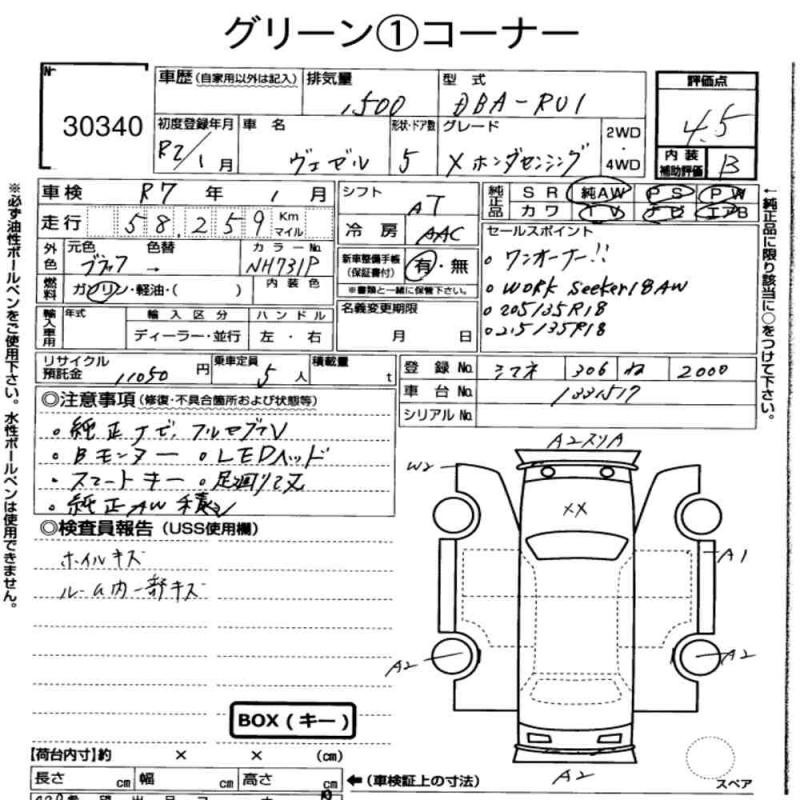 グリーン①コーナー
No
30340
車歴 (自家用以外は記入)
排気量 1500
型式 DBA-RU1
評価点 4.5
内装補助評価 B
初度登録年月 R2/1月
車名 ヴェゼル
形状・ドア数 5
グレード X ホンダセンシング
2WD・4WD
車検 R7年 1月
シフト AT
純正品 SR 純AW PS PW
カワ TV ナビ エアB
走行 58,259 Km マイル
冷房 AAC
セールスポイント
外色 元色 ブラック 色替 → カラーNo. NH731P
新車整備手帳(保証書付) 有・無
※書類と一緒に保管下さい。
。ワンオーナー!!
。WORK Seeker18AW
。205/35R18
。215/35R18
燃料 ガソリン・軽油・( ) 内装色
名義変更期限 月 日
輸入車用 年式 輸入区分 ハンドル
ディーラー・並行 左・右
リサイクル預託金 11050円
乗車定員 5人
積載量 t
登録No. シマネ 306 ね 2000
車台No. 1331517
シリアルNo.
◎注意事項(修復・不具合箇所および状態等)
。純正ナビ、フルセグTV
。Bモニター 。LEDヘッド
。スマートキー 。足廻リマス
。純正AW 積
◎検査員報告(USS使用欄)
ホイルキズ
ルーム内一部キズ
A2スリA
W2
XX
A1
A2
A2
A2
BOX(キー)
スペア
【荷台内寸】約 × × (cm)
長さ cm 幅 cm 高さ cm ←(車検証上の寸法)
※必ず油性ボールペンをご使用下さい。水性ボールペンは使用できません。
←純正品に限り該当に○をつけて下さい。